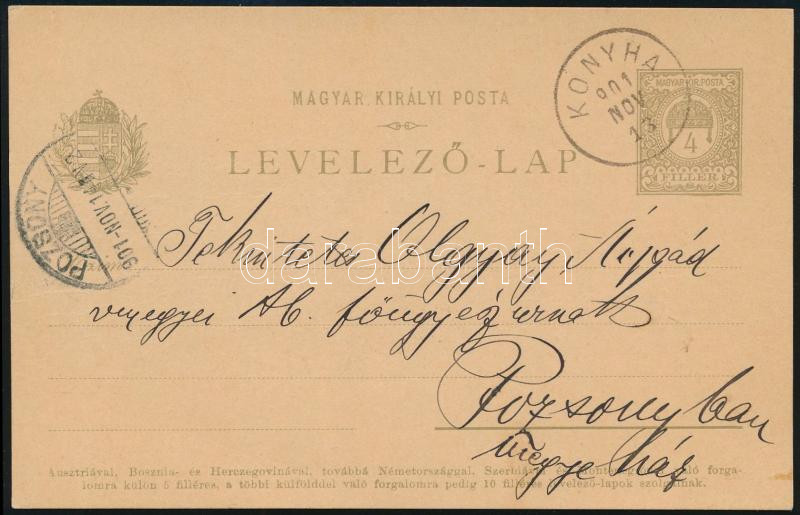 KONYHA
901
NOV
13
MAGYAR KIR. POSTA
4
FILLÉR
MAGYAR KIRÁLYI POSTA
LEVELEZŐ-LAP
POZSONY
901-NOV
Tekintetes Olgyay Árpád
vmegyei tb. főügyész urnak
Pozsonyban
megyeház
darabanth
Ausztriával, Bosznia- és Herczegovinával, továbbá Németországgal, Szerbiával és Montenegróval való forga-
lomra külön 5 filléres, a többi külfölddel való forgalomra pedig 10 filléres levelező-lapok szolgálnak.